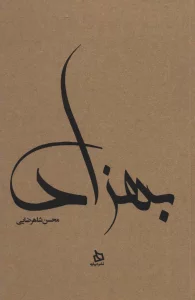 بهزاد
محسن شاهرضایی